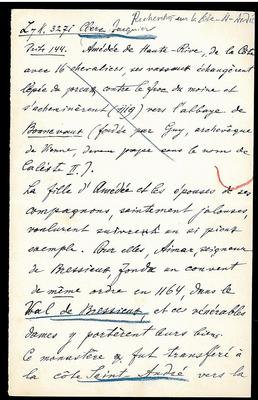 Recherches sur la Côte-St-André
Lyk. 3275 Clerc Jacquier
Notes 144. Amédée de Haute-Rive, de la Côte
avec 16 chevaliers, ses vassaux échangèrent
l'épée de preux contre le froc du moine et
s'acheminèrent (1119) vers l'abbaye de
Bonnevaux (fondée par Guy, archevêque
de Vienne, devenu pape sous le nom de
Calixte II.)
La fille d'Amédée et les épouses de ses
compagnons, saintement jalouses,
voulurent suivre un si pieux
exemple. Pour elles, Aimar, seigneur
de Bressieux, fonda un couvent
de même ordre en 1164, dans le
Val de Bressieux et ces vénérables
dames y portèrent leurs biens.
Ce monastère fut transféré à
la côte Saint André vers la